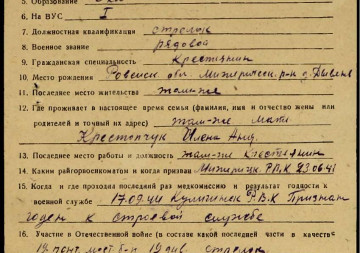 5. Образование
6. На ВУС I
7. Должностная квалификация стрелок
8. Военное звание рядовой
9. Гражданская специальность крестьянин
10. Место рождения Ровенск. обл. р-н д.
11. Последнее место жительства там-же
12. Где проживает в настоящее время семья (фамилия, имя и отчество жены или
родителей и точный их адрес) там-же мать
Крестопчук Илена Анд.
13. Последнее место работы и должность там-же крестьянин
14. Каким райгорвоенкоматом и когда призван РВК 23.06.41
15. Когда и где проходил последний раз медкомиссию и результат годности к
военной службе 17.09.44 Р.В.К Признан
годен к строевой службе
16. Участие в Отечественной войне (в составе какой последней части и в качестве
19 стрелок